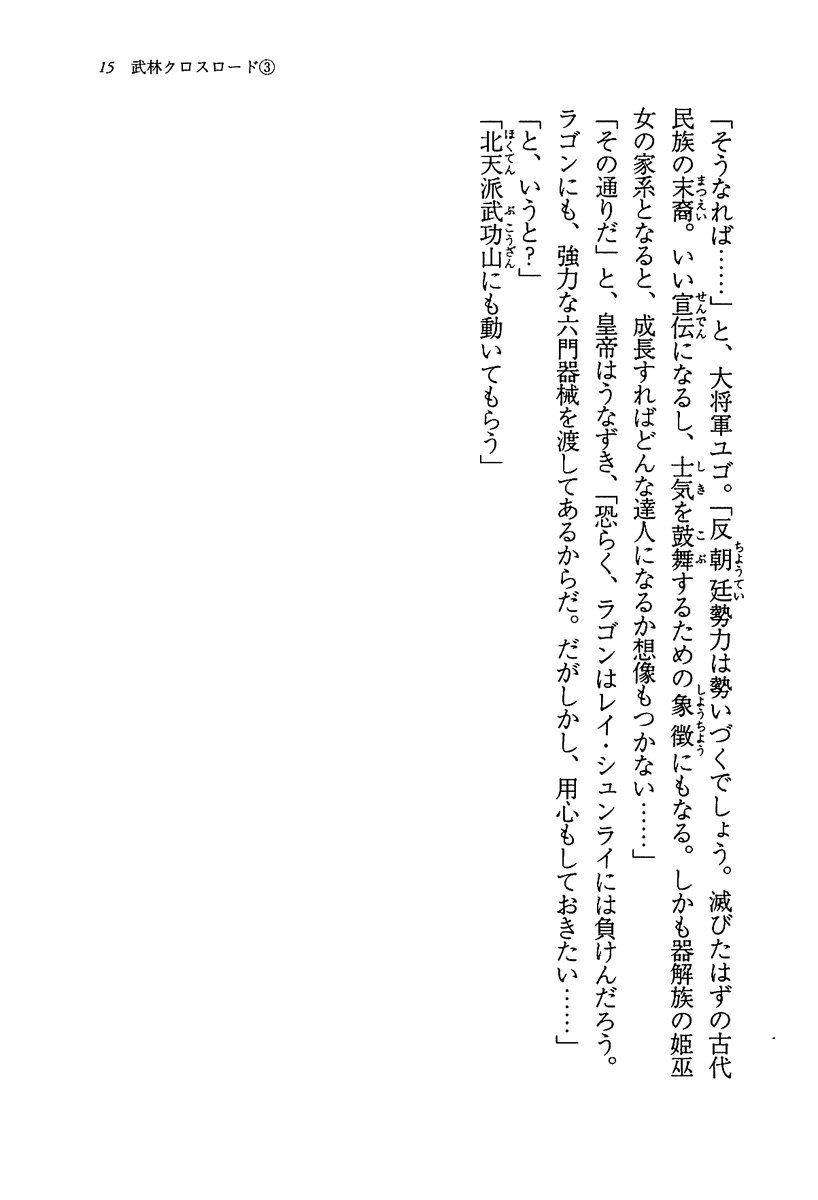 15 武林クロスロード③
「そうなれば……」と、大将軍ユゴ。「反朝廷勢力は勢いづくでしょう。滅びたはずの古代
民族の末裔。いい宣伝になるし、士気を鼓舞するための象徴にもなる。しかも器解族の姫巫
女の家系となると、成長すればどんな達人になるか想像もつかない……」
「その通りだ」と、皇帝はうなずき、「恐らく、ラゴンはレイ・シュンライには負けんだろう。
ラゴンにも、強力な六門器械を渡してあるからだ。だがしかし、用心もしておきたい……」
「と、いうと?」
「北天派武功山にも動いてもらう」